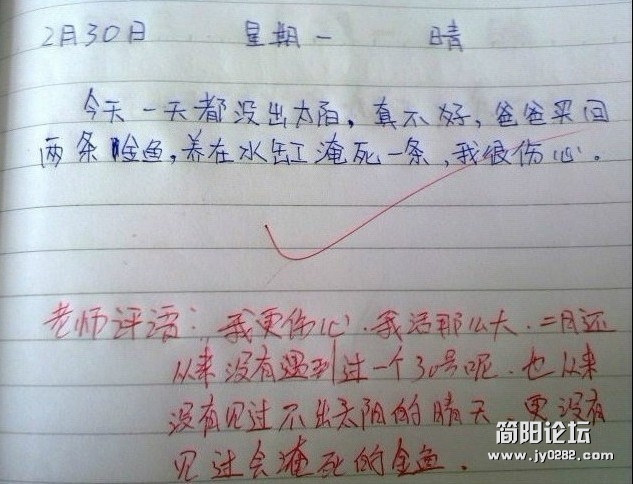 2月30日 星期一 晴
今天一天都没出太阳，真不好，爸爸买回
两条金鱼，养在水缸淹死一条，我很伤心。
老师评语：我更伤心．我活那么大．二月还
从来没有遇到过一个30号呢．也从来
没有见过不出太阳的晴天．更没有
见过会淹死的金鱼．
简阳论坛
www.jy0282.com